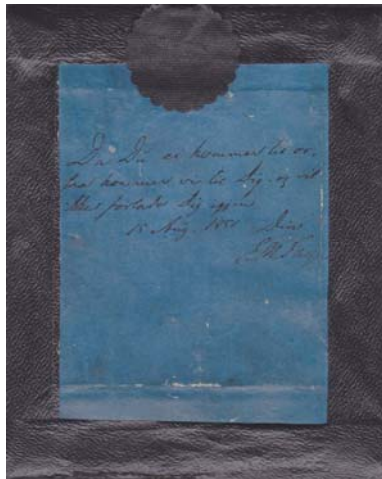 Da Du ei kommer til os,
saa kommer vi til Dig og vil
ikke forlade Dig igjen
15 Aug. 185
Din